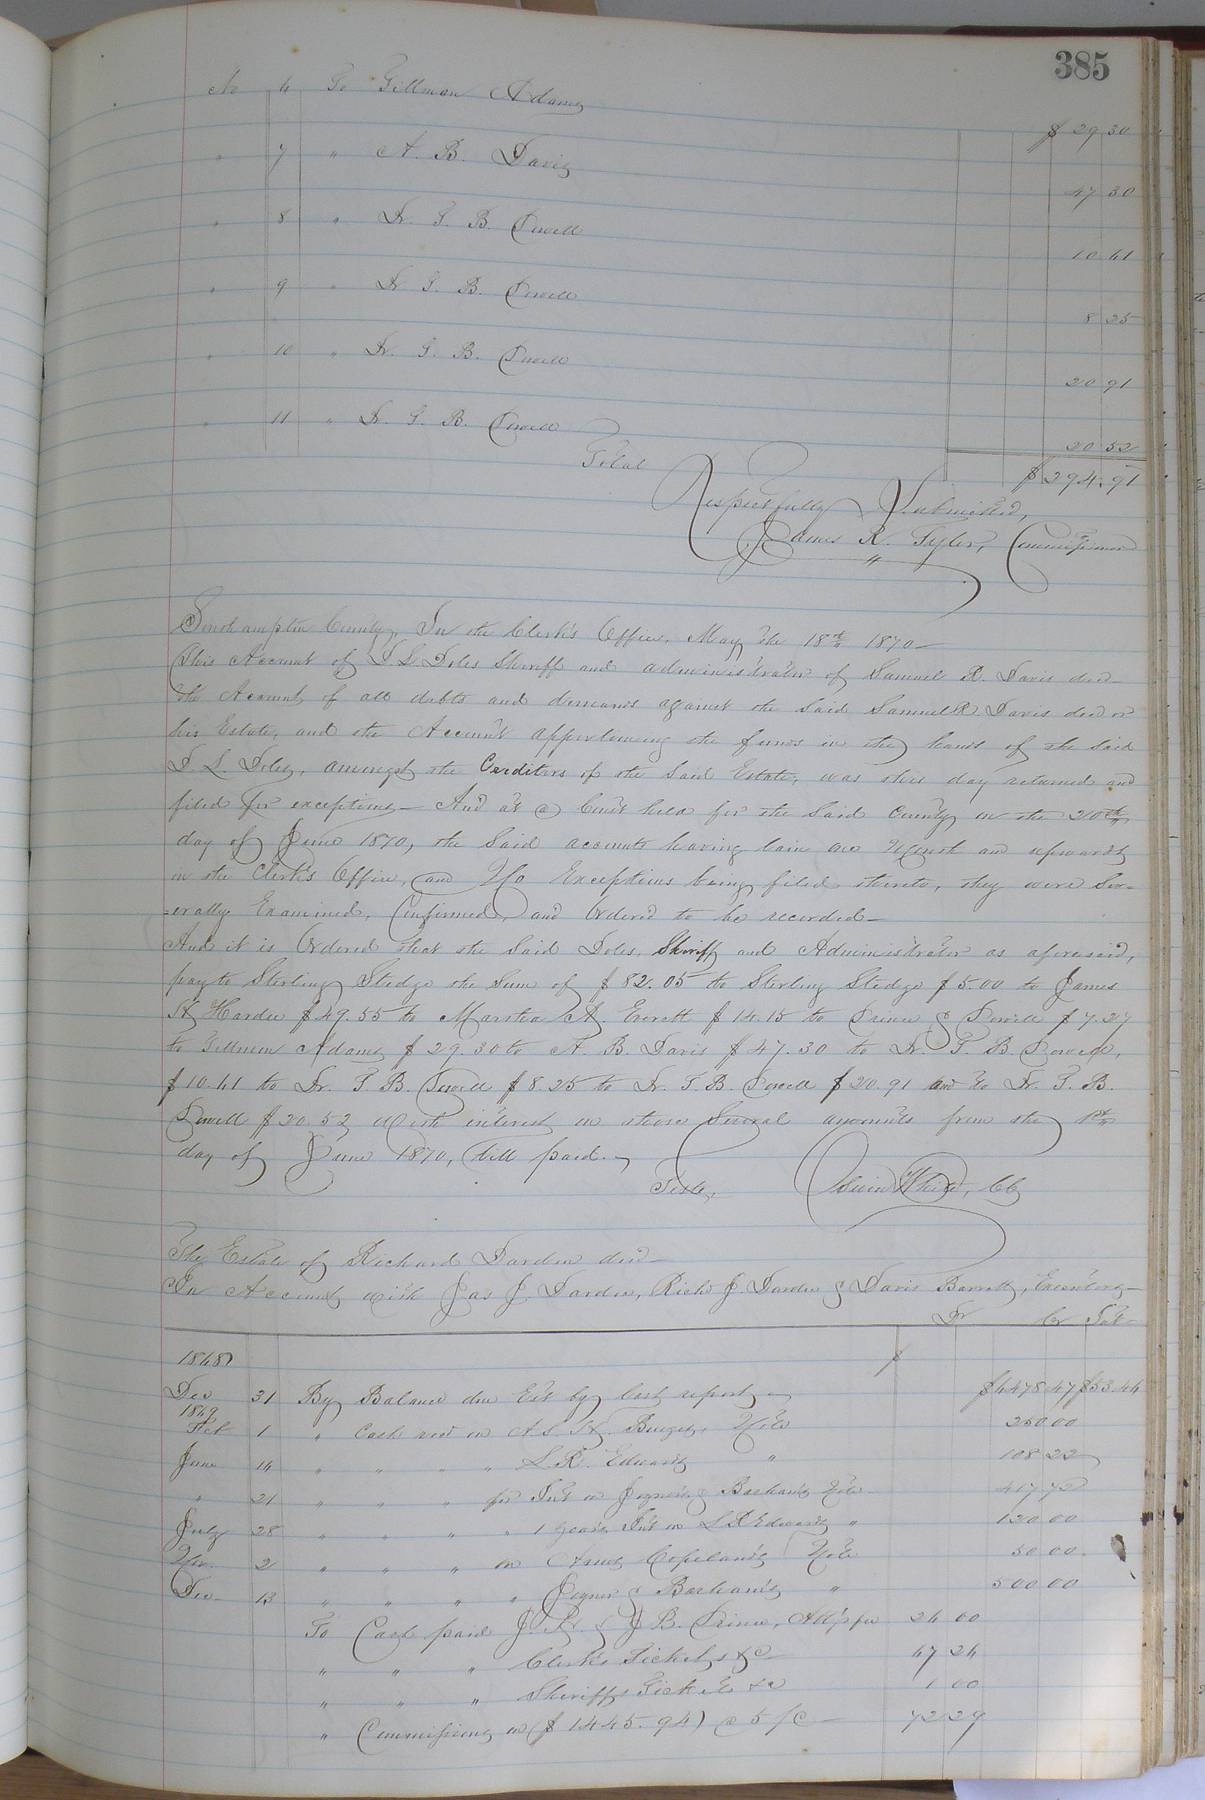 385
No 6 To Gillman Adams $ 29 30
" 7 " A. B. Davis 47 30
" 8 " Dr. G. B. Powell 10 41
" 9 " Dr G. B. Powell 8 25
" 10 " Dr. G. B. Powell 20 91
" 11 " Dr. G. B. Powell 20 52
Total $ 294.91
Respectfully Submitted,
James R. Tyler, Commissioner
Southampton County, In the Clerk's Office, May the 18th 1870—
This Account of J L Doles Sheriff and administrator of Samuel R. Davis decd—
the Account of all debts and demands against the Said Samuel R Davis decd or
his Estate, and the Account apportioning the funds in the hands of the Said
J. L. Doles, amongst the Creditors of the Said Estate, was this day returned and
filed for exceptions— And at a Court held for the Said County on the 20th
day of June 1870, the Said accounts having lain one Month and upwards
in the Clerk's Office, and No Exceptions being filed thereto, they were Sev-
-erally Examined, Confirmed, and Ordered to be recorded—
And it is Ordered that the Said Doles, Sheriff and Administrator as aforesaid,
pay to Sterling Sledge the Sum of $ 82.05 to Sterling Sledge $ 5.00 to James
Hardee $ 49.55 to Martha A. Everett $ 14.15 to Prince & Powell $ 7.27
to Gillman Adams $ 29.30 to A. B. Davis $ 47.30 to Dr. G. B. Powell,
$ 10.41 to Dr. G. B. Powell $ 8.25 to Dr. G. B. Powell $ 20.91 and to Dr. G. B.
Powell $ 20.52 with interest on those Several amounts from the 1st
day of June 1870, till paid.—
Teste, White, CC
The Estate of Richard Darden decd—
In Account with Jas J. Darden, Richd J. Darden & Davis Barrett, Executors—
Dr Cr Int—
1848 $
Dec 31 By Balance due Est by last report— $4478 47 $53.44
1849
Feb 1 " Cash recd on A S H. Burges, Note 250 00
June 14 " " " " L. R. Edwards " 108 22
" 21 " " " for Int on Joyner & Barham's Note 417 72
July 28 " " " " 1 year's Int on L R Edwards " 120 00
Nov. 2 " " " on Copeland's Note 50 00
Dec— 13 " " " " Joyner & Barham's " 500 00
To Cash paid J. R. & J B. Prince, Att'ys fee 24 00
" " " Clerk's Tickets &c— 47 24
" " " Sheriff's Tickets &c 1 00
" Commissions on ($ 1445.94) @ 5 /C— 72 29